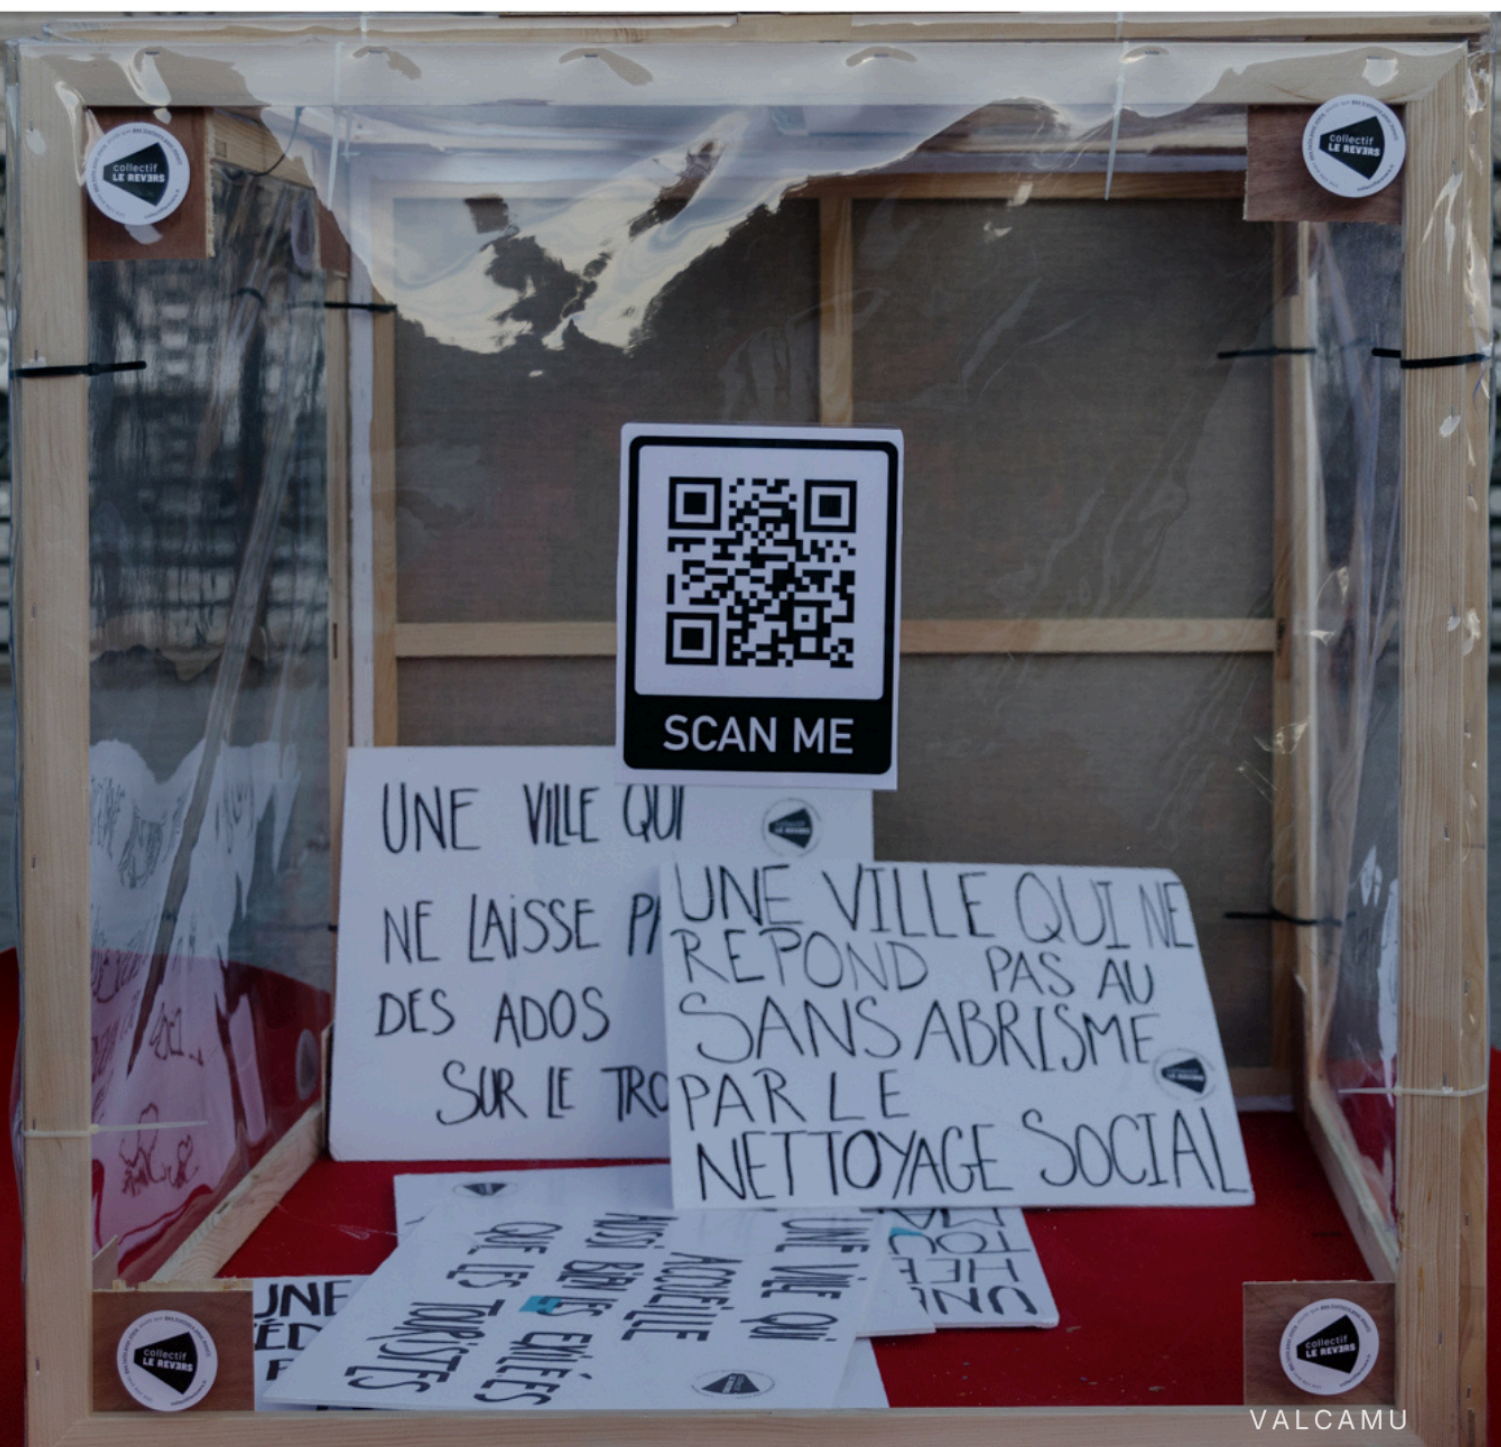 collectif
LE REVERS
collectif
LE REVERS
SCAN ME
UNE VILLE QUI
NE LAISSE
DES ADOS
SUR LE
UNE VILLE QUI NE
REPOND PAS AU
SANS ABRISME
PAR LE
NETTOYAGE SOCIAL
UNE VILLE QUI
ACCUEILLE
AUSSI BIEN LES EXILÉ.ES
QUE LES TOURISTES
UNE
collectif
LE REVERS
collectif
LE REVERS
VALCAMU